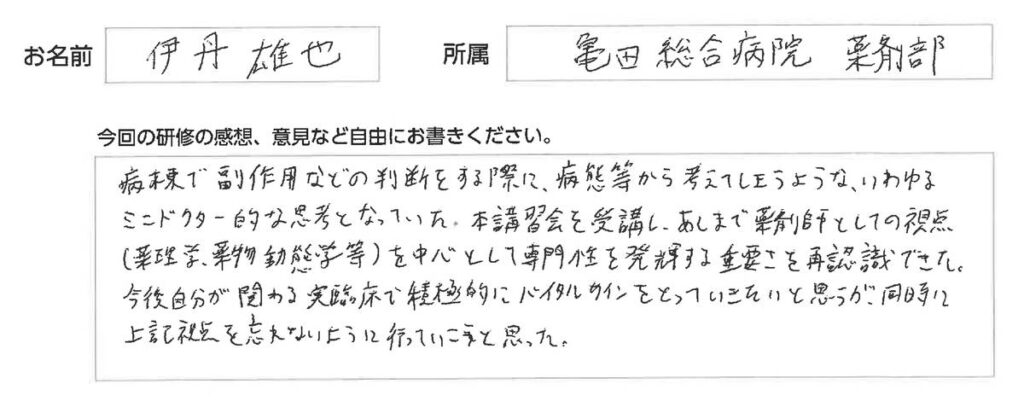 お名前 伊丹 雄也 所属 亀田総合病院 薬剤部
今回の研修の感想、意見など自由にお書きください。
病棟で副作用などの判断をする際に、病態等から考えてしまうような、いわゆる
ミニドクター的な思考となっていた。本講習会を受講し、あくまで薬剤師としての視点
(薬理学、薬物動態学等)を中心として専門性を発揮する重要さを再認識できた。
今後自分が関わる実臨床で積極的にバイタルサインをとっていきたいと思うが、同時に
上記視点を忘れないように行っていこうと思った。